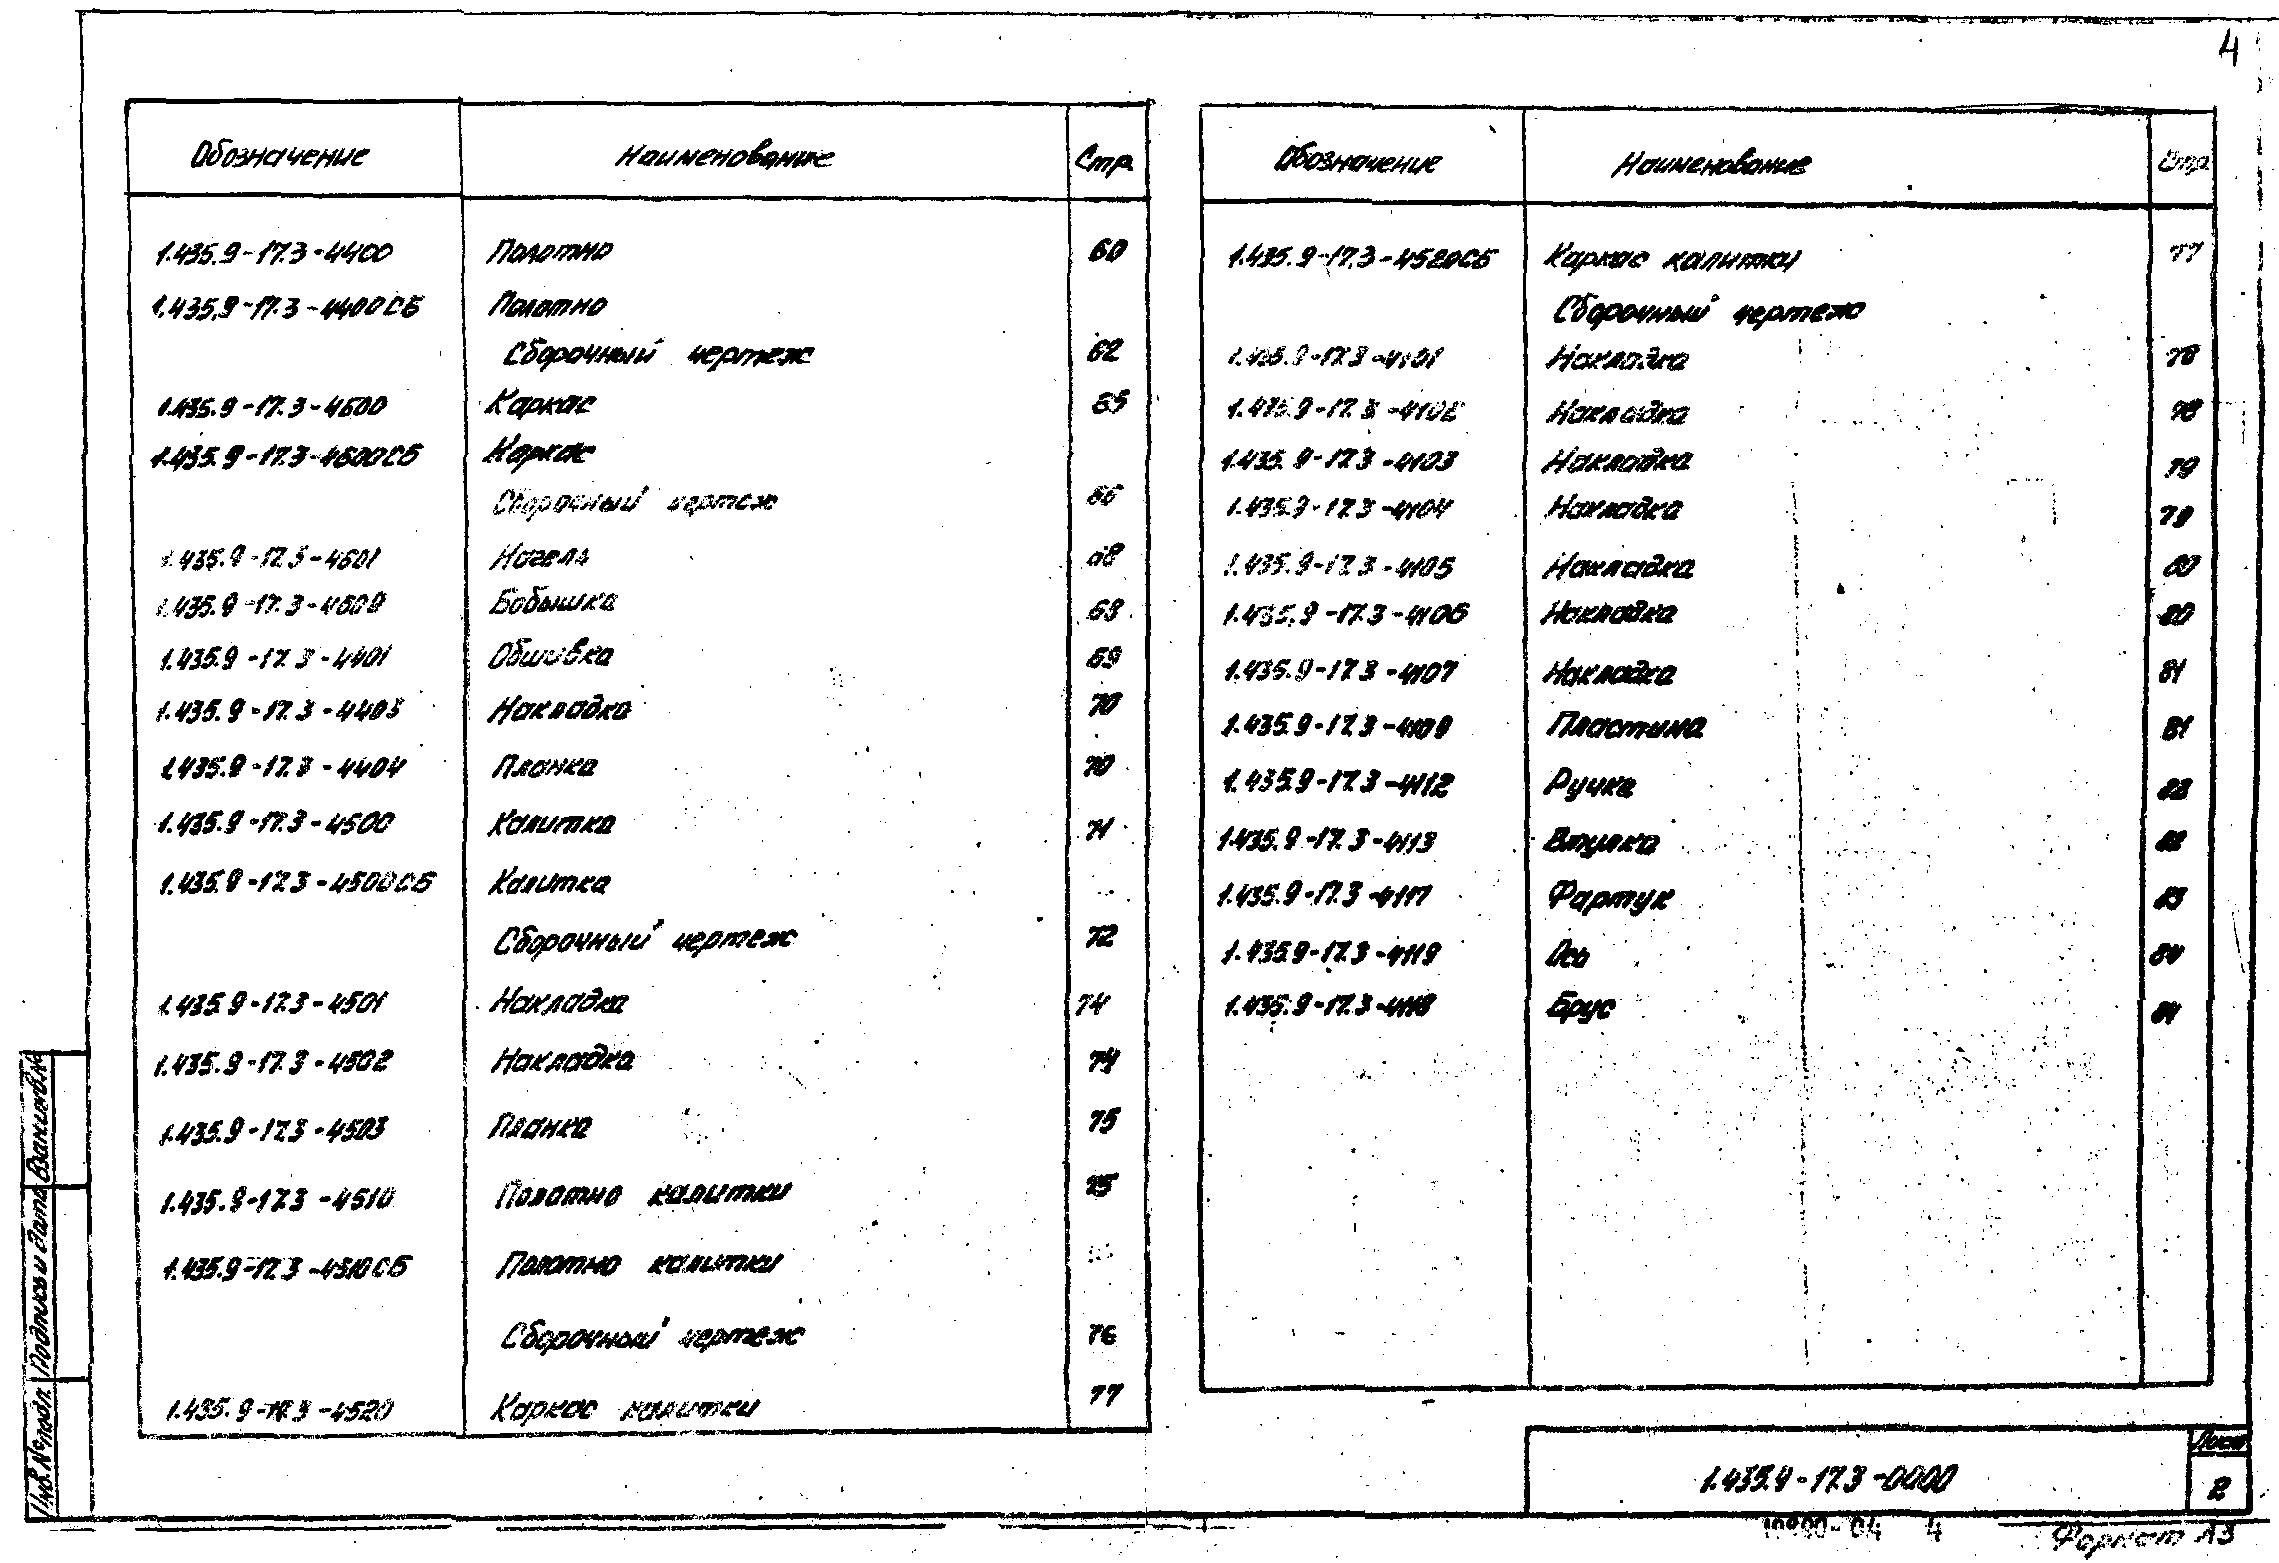 4
Обозначение Наименование Стр.
1.435.9-17.3-4400 Полотно 60
1.435.9-17.3-4400СБ Полотно
Сборочный чертеж 62
1.435.9-17.3-4600 Каркас 65
1.435.9-17.3-4600СБ Каркас
Сборочный чертеж 66
1.435.9-17.3-4601 Нагель 68
1.435.9-17.3-4609 Бобышка 68
1.435.9-17.3-4401 Обшивка 69
1.435.9-17.3-4403 Накладка 70
1.435.9-17.3-4404 Планка 70
1.435.9-17.3-4500 Калитка 71
1.435.9-17.3-4500СБ Калитка
Сборочный чертеж 72
1.435.9-17.3-4501 Накладка 74
1.435.9-17.3-4502 Накладка 74
1.435.9-17.3-4503 Планка 75
1.435.9-17.3-4510 Полотно калитки 75
1.435.9-17.3-4510СБ Полотно калитки
Сборочный чертеж 76
1.435.9-17.3-4520 Каркас калитки 77
Обозначение Наименование Стр.
1.435.9-17.3-4520СБ Каркас калитки 77
Сборочный чертеж
1.435.9-17.3-4101 Накладка 78
1.435.9-17.3-4102 Накладка 78
1.435.9-17.3-4103 Накладка 79
1.435.9-17.3-4104 Накладка 79
1.435.9-17.3-4105 Накладка 80
1.435.9-17.3-4106 Накладка 80
1.435.9-17.3-4107 Накладка 81
1.435.9-17.3-4109 Пластина 81
1.435.9-17.3-4112 Ручка
1.435.9-17.3-4113 Втулка 82
1.435.9-17.3-4117 Фартук 83
1.435.9-17.3-4119 Ось 84
1.435.9-17.3-4118 Брус 84
1.435.9-17.3-0000
Лист
2
04 4
Формат А3
Инв.№ подл. Подпись и дата Взам.инв.№